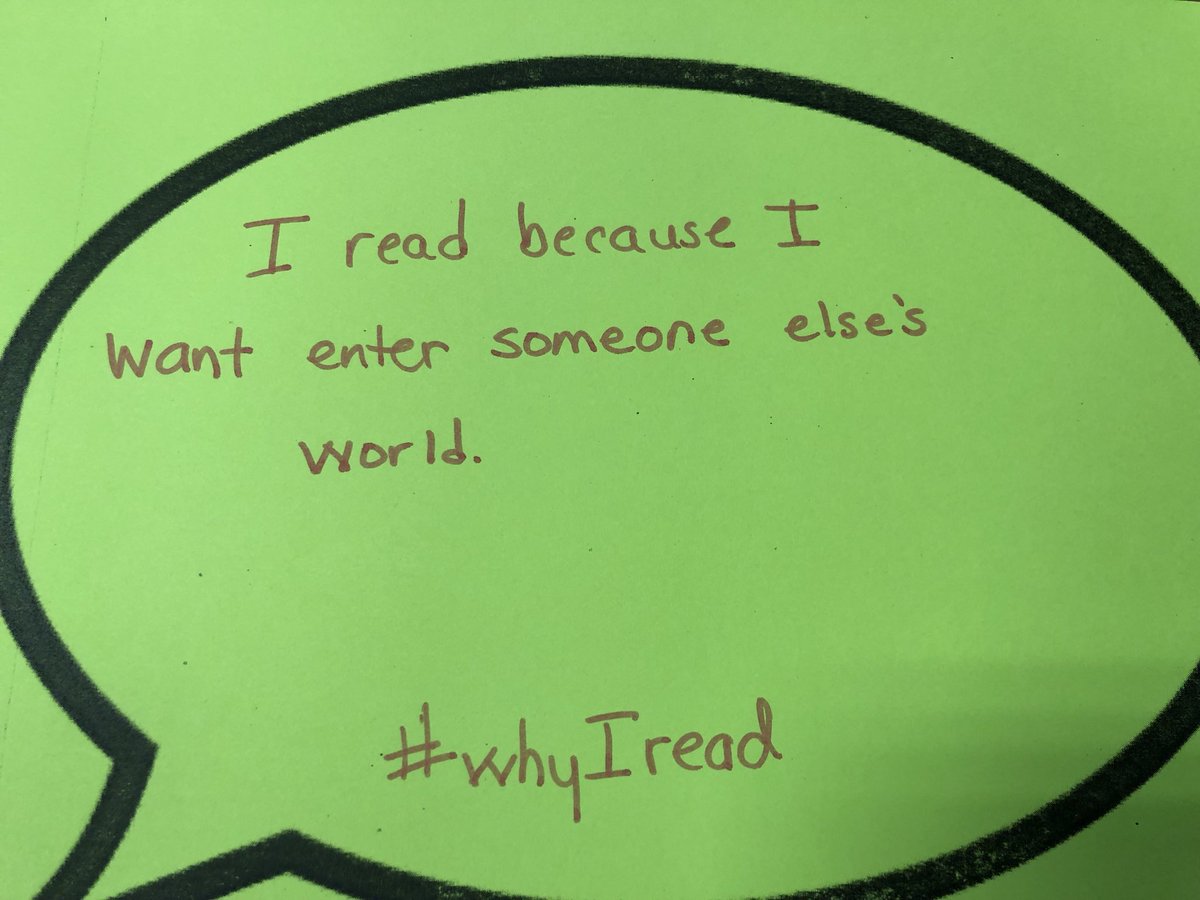 I read because I
want enter someone else's
world.
#whyIread